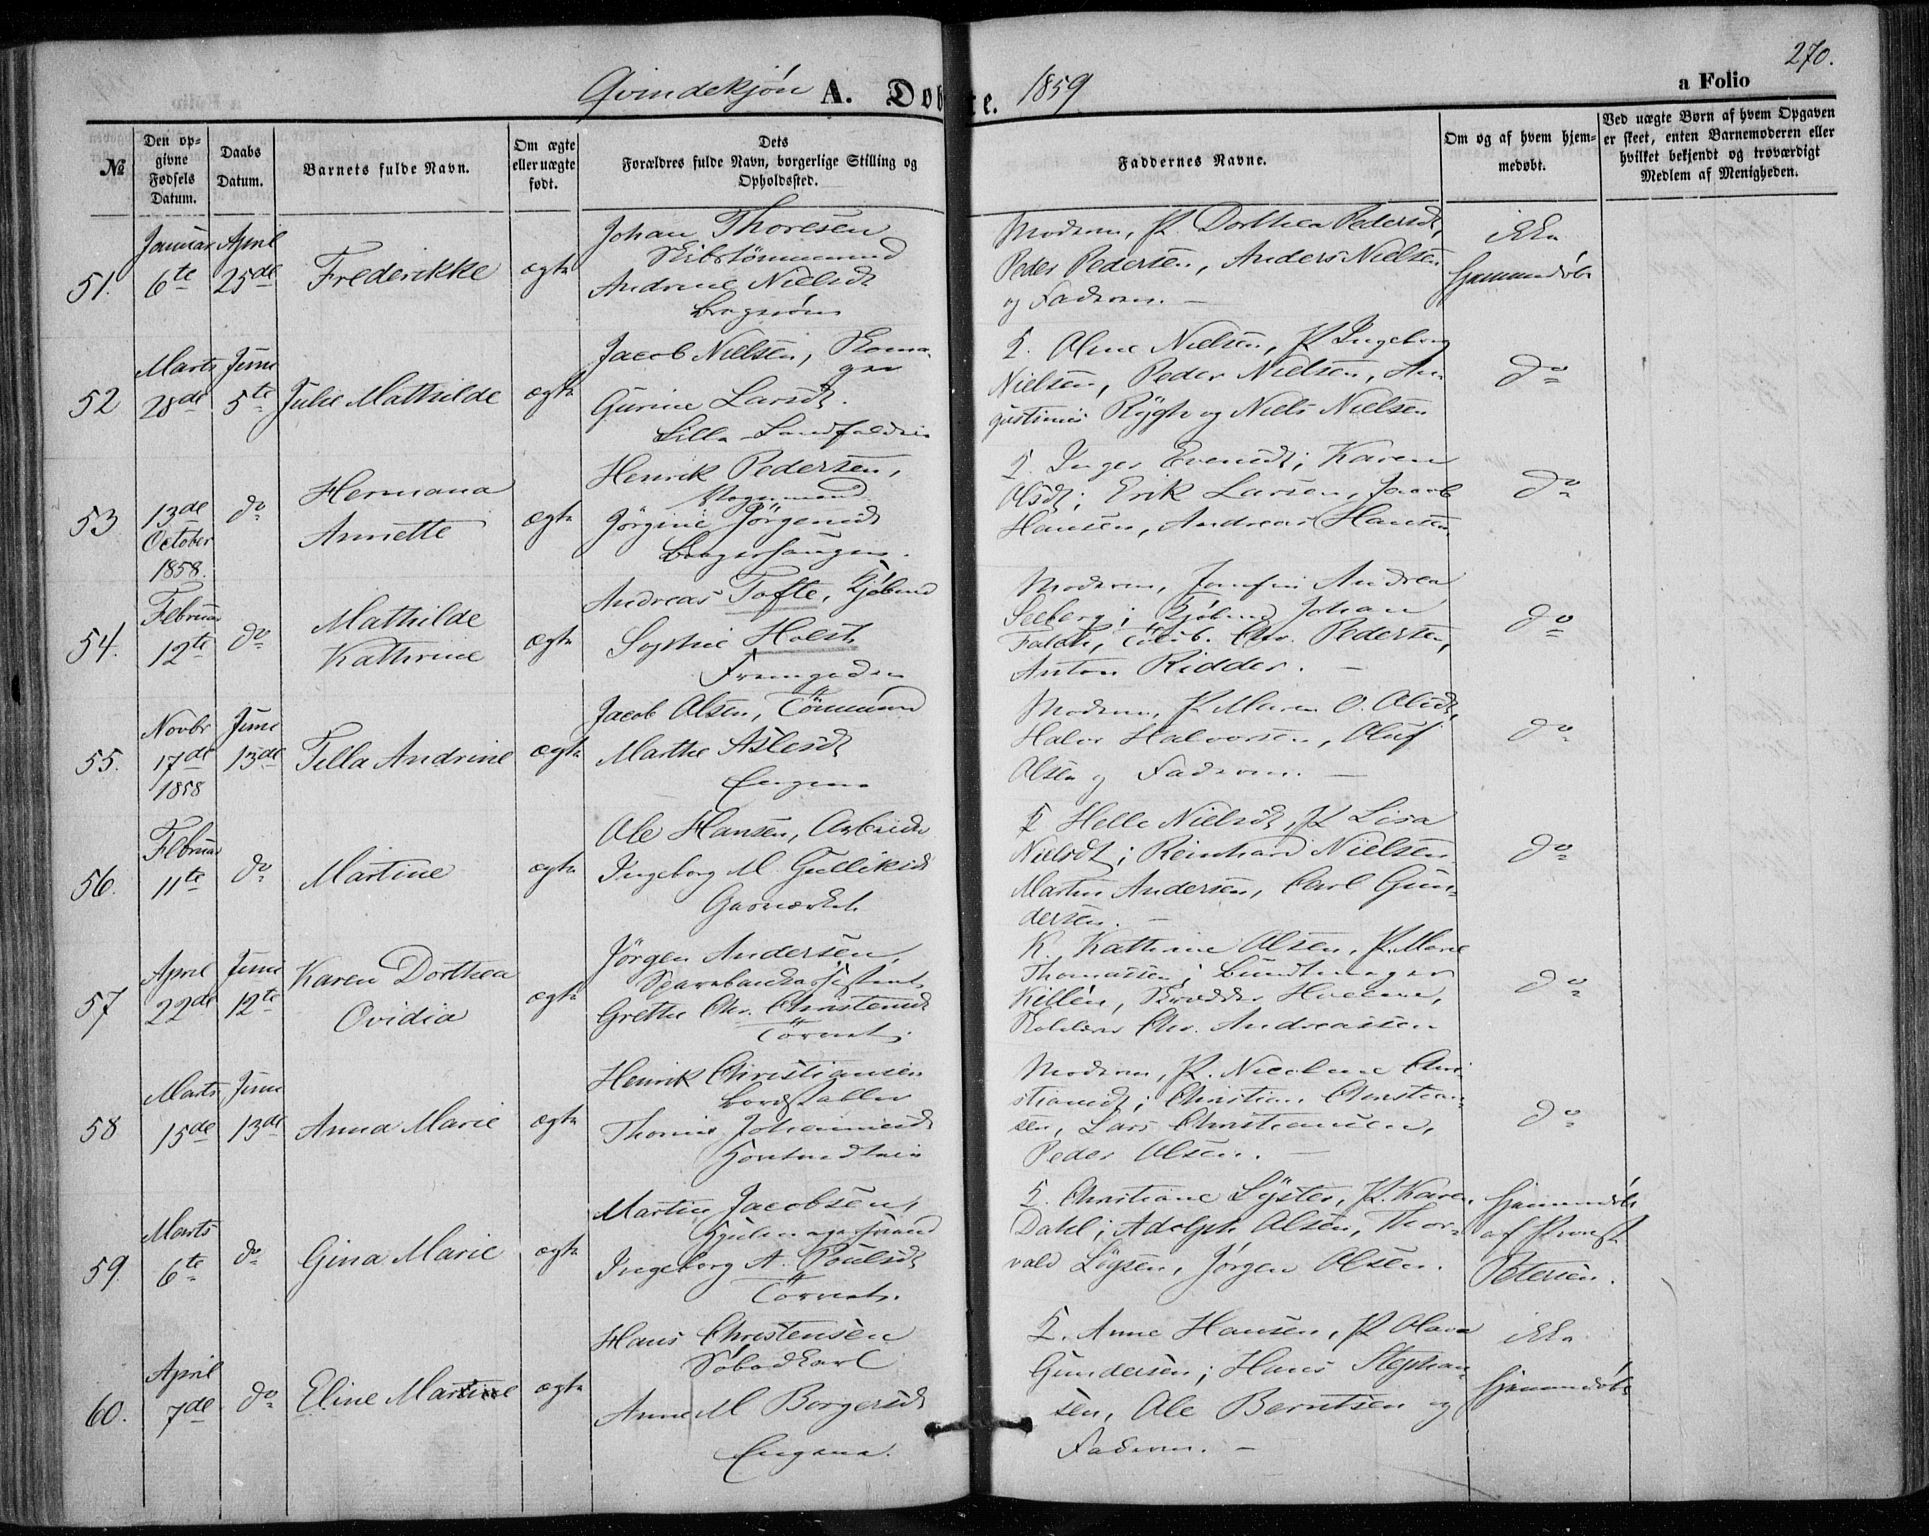 270.
Qvindekjøn A. Døbte. 1859
a Folio
№
Den opgivne Fødsels Datum.
Daabs Datum.
Barnets fulde Navn.
Om ægte eller uægte født.
Dets Forældres fulde Navn, borgerlige Stilling og Opholdssted.
Faddernes Navne.
Om og af hvem hjemmedøbt.
Ved uægte Børn af hvem Opgaven er skeet, enten Barnemoderen eller hvilket bekjendt og troværdigt Medlem af Menigheden.
51. Januar 6te April 25de Frederikke ægte
Johan Thoresen
Skibstømmermand
Andrine Nielsdt
Bragerøen
Moderen, P. Dorthea Pedersdt,
Peder Pedersen, Anders Nielsen
og Faderen. —
ikke
hjemmedøbt
52 Marts 28de Juni 5te Julie Mathilde ægte
Jacob Nielsen, Skomager
Gurine Larsdt.
Lille Landfaldøie
K. Oline Nielsen, P. Ingeborg
Nielsen, Peder Nielsen, Au-
gustinus Rygh og Niels Nielsen
do
53 13de October 1858. do Hermana Annette ægte
Henrik Pedersen,
Vognmand
Jørgine Jørgensdt
Bragerhaugen.
K. Inger Evensdt; Karen
Olsdt; Erik Larsen, Jacob
Hansen, Andreas Hansen
do
54. Februar 12te do Mathilde Kathrine ægte
Andreas Tofte, Kjøbmd
Sophie Holst
Fremgaden
Moderen, Jomfru Andrea
Seeberg; Kjøbmd Johan
Faldt, Chr. Pedersen,
Anton Ridder. —
do
55. Novbr 17de 1858 Juni 13de Tella Andrine ægte
Jacob Olsen, Tömmermand
Marthe Aslesdt
Engene
Moderen, P. Maren O. Olsdt,
Halvor Halvorsen, Oluf
Olsen og Faderen. —
do
56. Februar 11te do Martine ægte
Ole Hansen, Arbeider
Ingeborg M. Gulliksdt
Gasværket
K Helle Nielsdt, P. Lisa
Nielsdt; Reinhard Nielsen
Martin Andersen, Carl Gun-
dersen. —
do
57 April 22de Juni 12te Karen Dorthea Ovidia ægte
Jørgen Andersen,
Sparebankassistent,
Grethe Chr. Christensdt
Törvet.
K. Kathrine Olsen, P. Marie
Thomassen; Bundtmager
Killén, Skrædder
Chr. Andreassen
do
58 Marts 15de Juni 13de Anna Marie ægte
Henrik Christiansen
Bordstabler
Thorine Johannesdt
Moderen, P. Nicoline Chri-
stiansdt; Christian Christian-
sen, Lars Christiansen,
Peder Olsen. —
do
59 Marts 6te do Gina Marie ægte
Martin Jacobsen,
Hjulmagersvend
Ingeborg A. Poulsdt
Törvet.
K. Christiane Lyster, P. Karen
Dahl; Adolph Olsen, Thor-
vald Löysen, Jørgen Olsen.
hjemmedøbt
af Provst
Petersen.
60. April 7de do Eline Martine ægte
Hans Christensen
Søbadkarl
Anne M Borgersdt
Engene.
K. Anne Hansen, P Olava
Gundersen; Hans Stephan-
sen, Ole Berntsen og
Faderen. —
ikke
hjemmedøbt